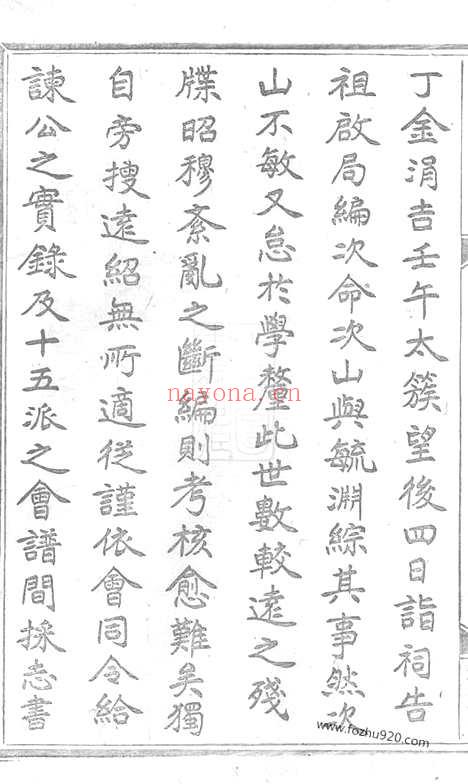 丁金涓吉壬午太簇望後四日詣祠告
祖啟局編次命次山與毓淵綜其事然次
山不敏又怠於學釐此世數較遠之殘
牒昭穆紊亂之斷編則考核愈難矣獨
自旁搜遠紹無所適從謹依會同令給
諫公之實錄及十五派之會譜間採志書
nayona.cn
www.fozhu920.com